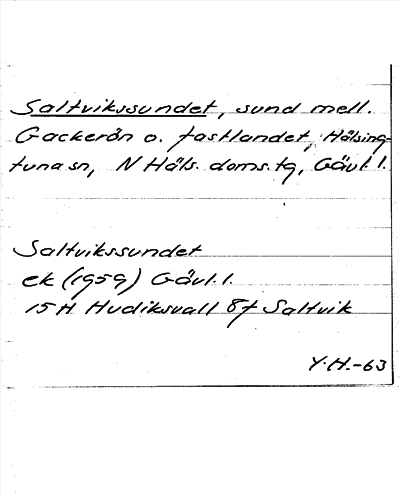 Saltvikssundet, sund mell.
Gackerön o. fastlandet, Hälsing-
tuna sn, N Häls. doms.tg, Gävl. l.
Saltvikssundet
ek (1959) Gävl. l.
15H Hudiksvall 8f Saltvik
Y.H.-63